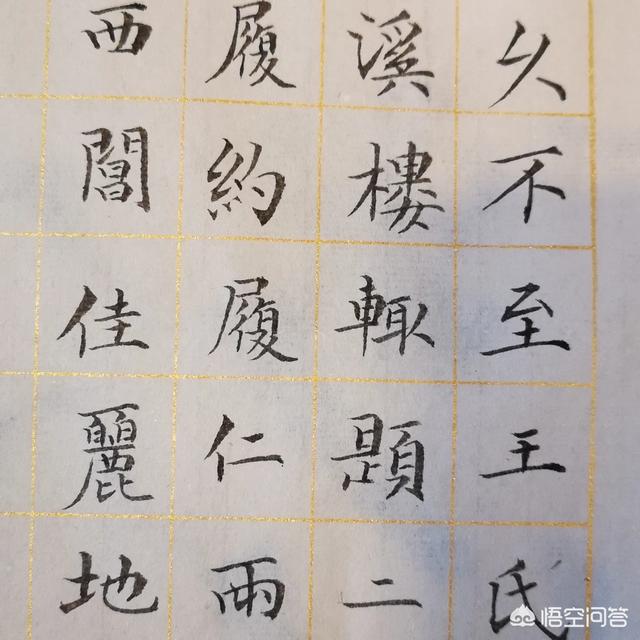 久不至王氏
溪樓輙題二
履約履仁雨
西閶佳麗地
悟空问答